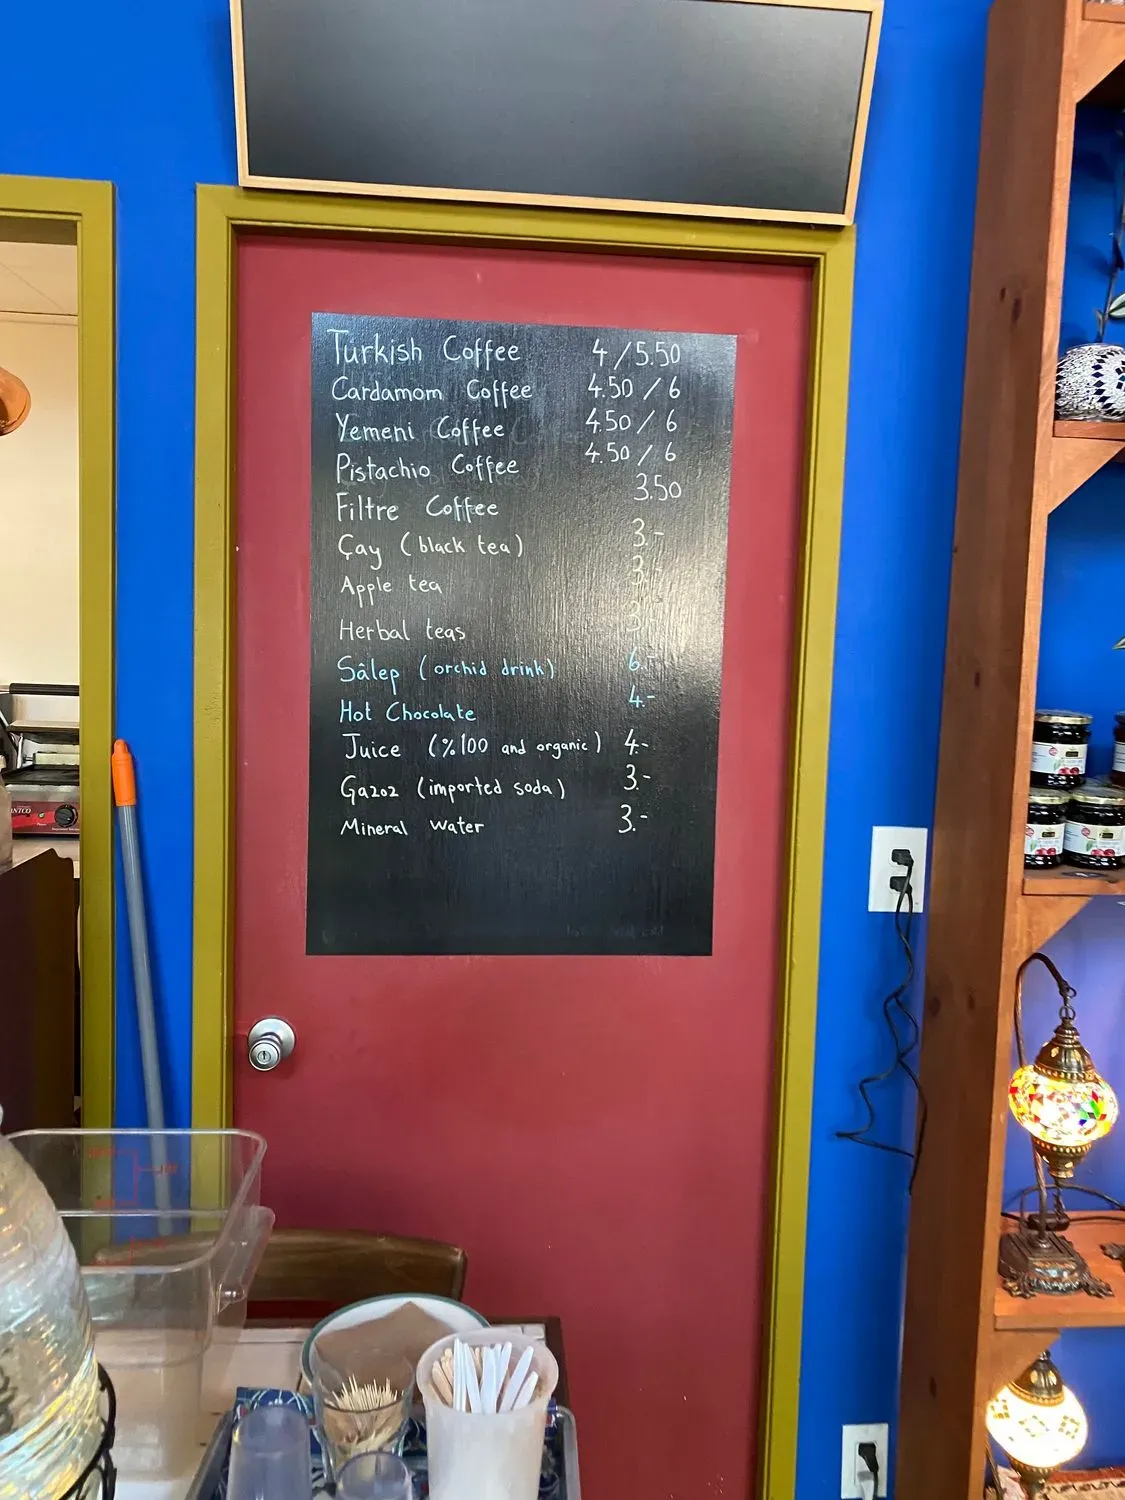 Turkish Coffee 4/5.50
Cardamom Coffee 4.50 / 6
Yemeni Coffee 4.50 / 6
Pistachio Coffee 4.50 / 6
Filtre Coffee 3.50
Çay (black tea) 3.-
Apple tea 3.-
Herbal teas 3.-
Sâlep (orchid drink) 6.-
Hot Chocolate 4.-
Juice (%100 and organic) 4.-
Gazoz (imported soda) 3.-
Mineral water 3.-